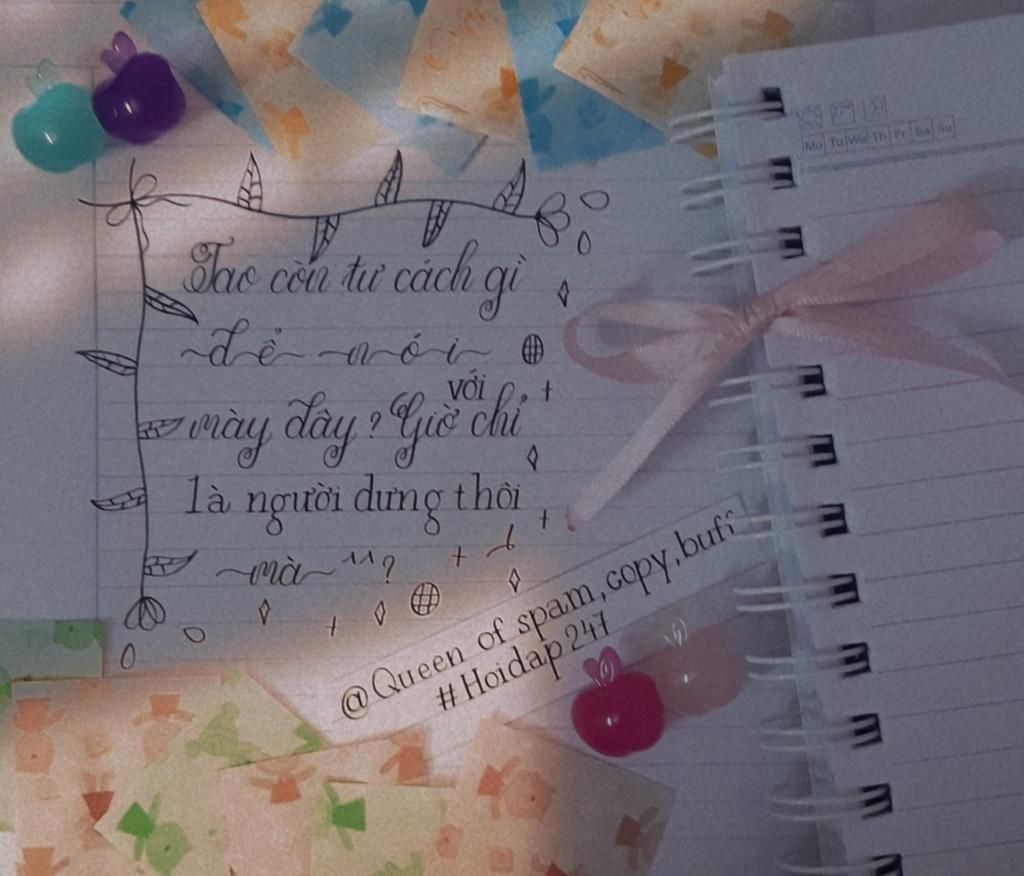 Tao còn tư cách gì
~để~ ~nói~
với
mày đây? Giờ chỉ
là người dưng thôi
~mà~ ^^?
@Queen of spam,copy,bufi
#Hoidap247
Mo Tu We Th Fr Sa Su